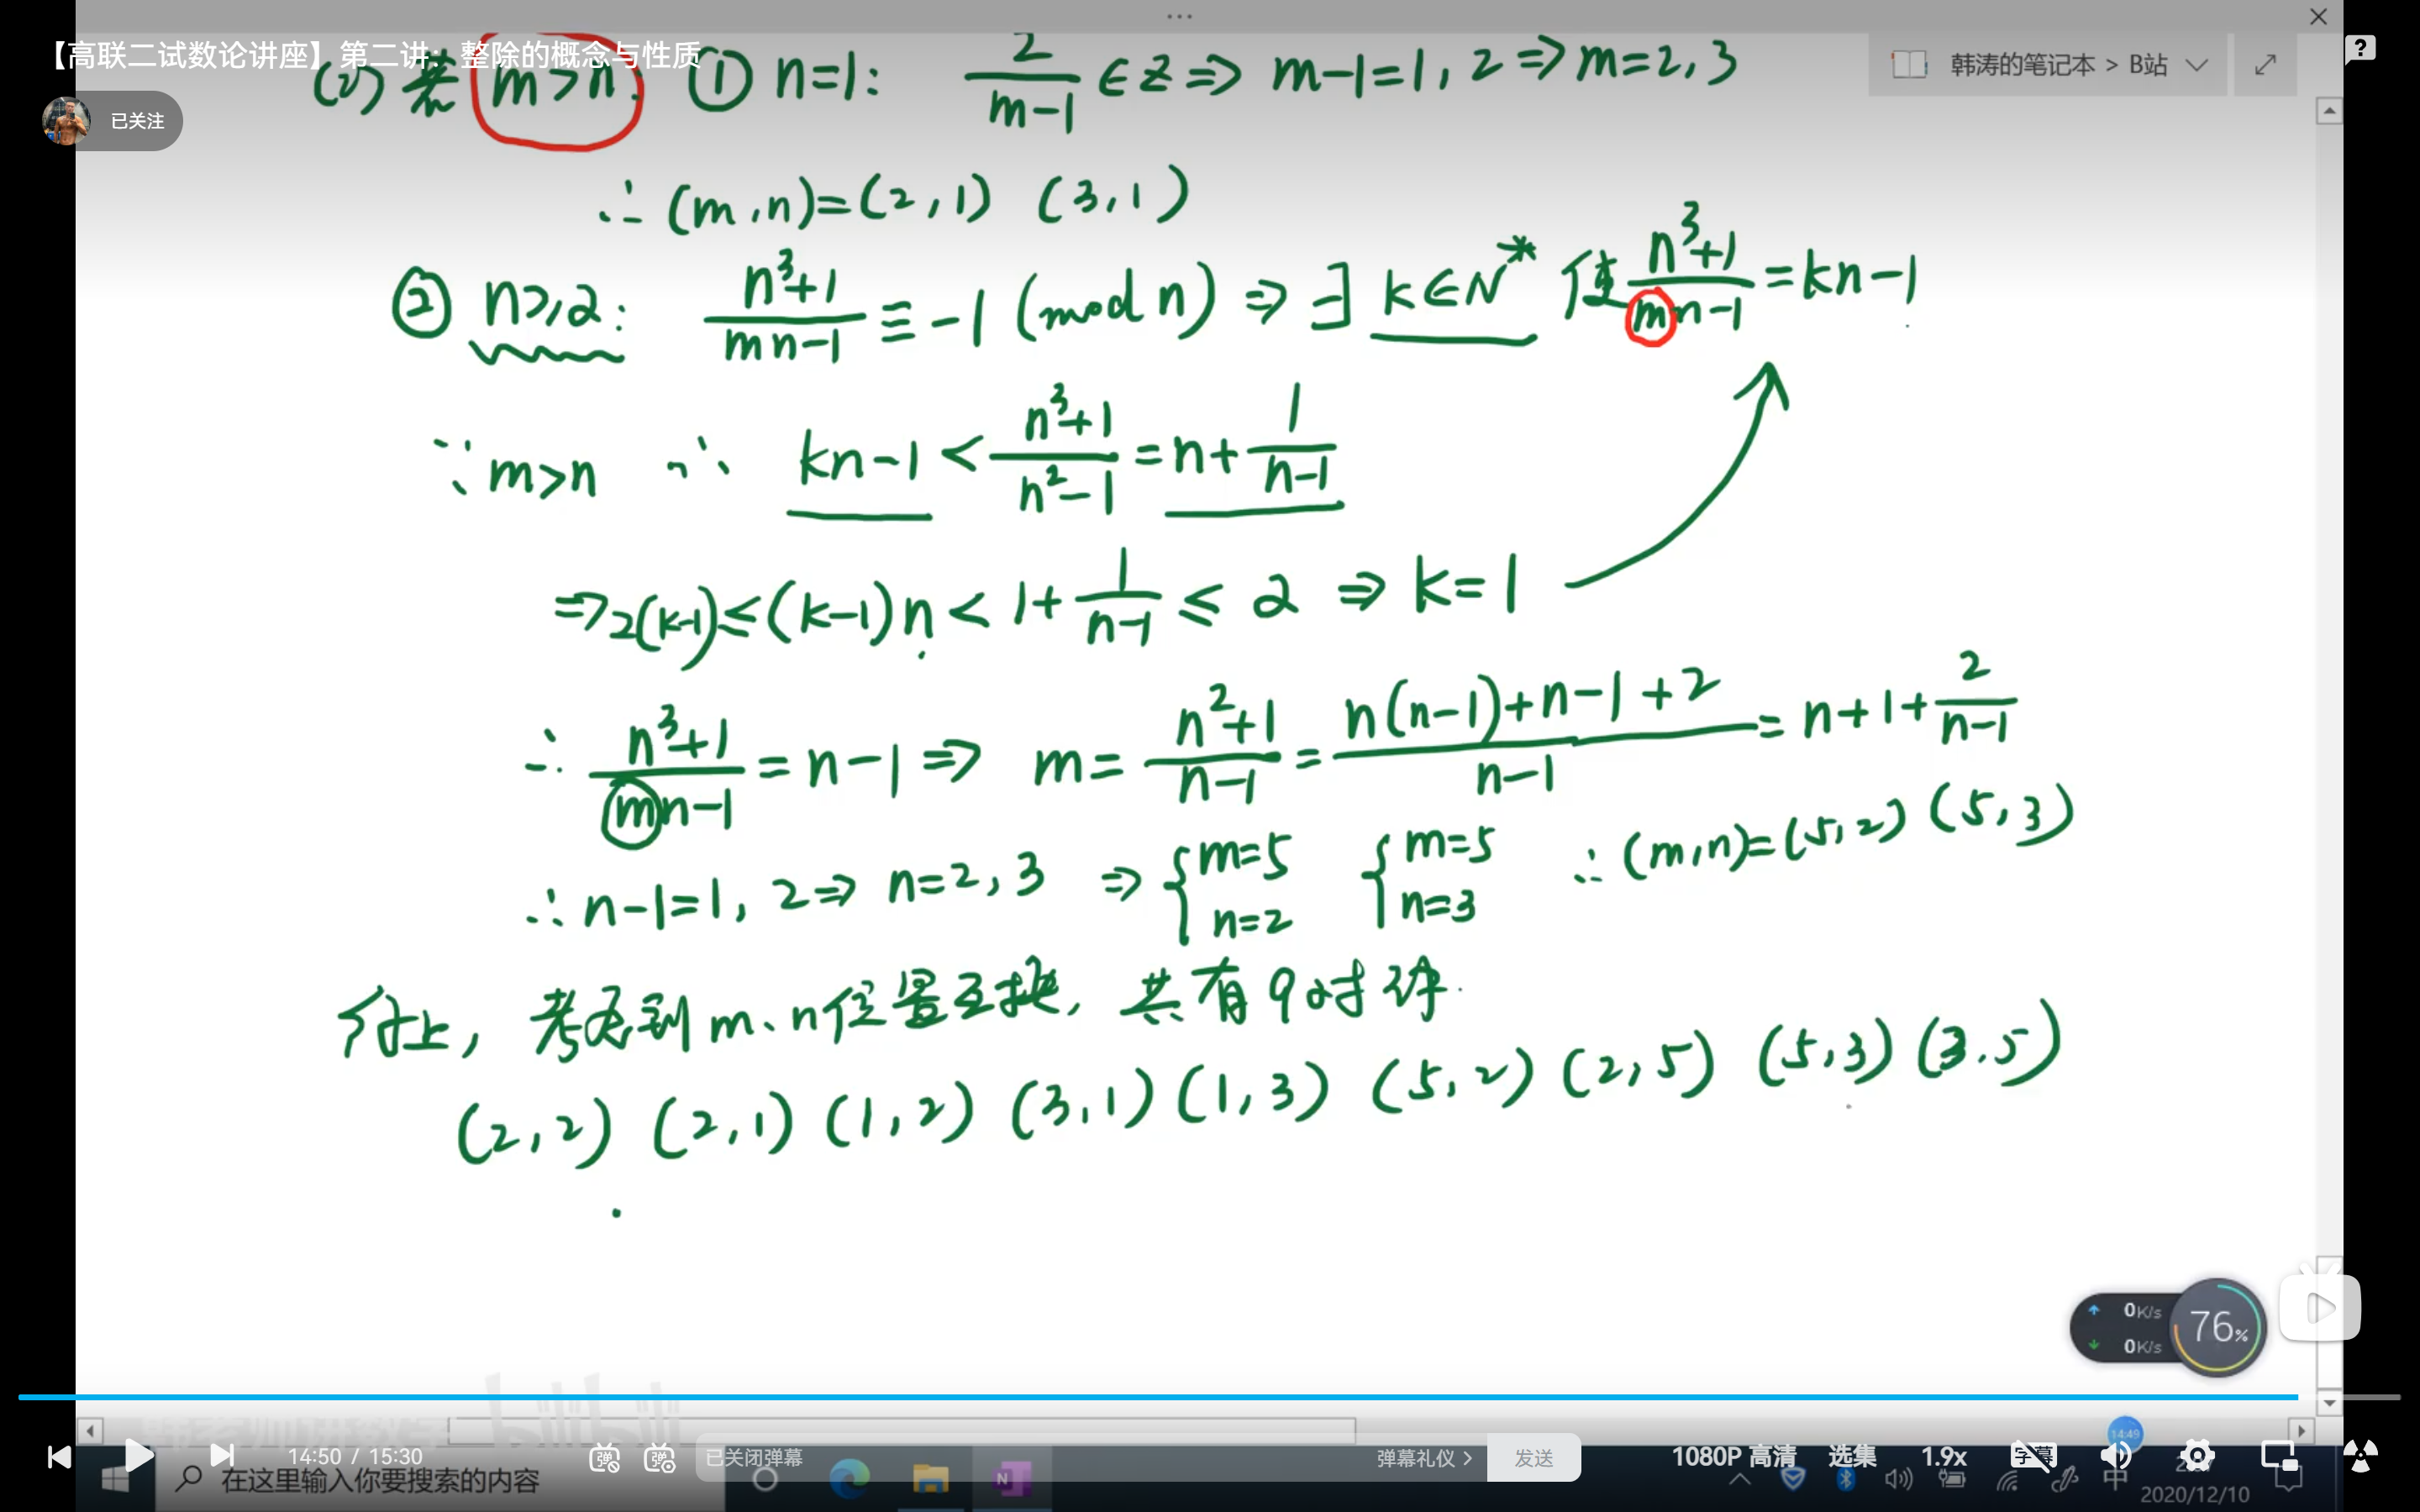 【高联二试数论讲座】第二讲：整除的概念与性质
已关注
韩涛的笔记本 > B站
(2) 若 m>n: ① n=1: 2/(m-1) ∈ Z ⇒ m-1=1, 2 ⇒ m=2, 3
∴ (m,n)=(2,1) (3,1)
② n≥2: (n³+1)/(mn-1) ≡ -1 (mod n) ⇒ ∃ k∈N* 使 (n³+1)/(mn-1) = kn-1
∵ m>n ∴ kn-1 < (n³+1)/(n²-1) = n+1/(n-1)
⇒ 2(k-1) ≤ (k-1)n < 1+1/(n-1) ≤ 2 ⇒ k=1
∴ (n³+1)/(mn-1) = n-1 ⇒ m = (n²+1)/(n-1) = (n(n-1)+n-1+2)/(n-1) = n+1+2/(n-1)
∴ n-1=1, 2 ⇒ n=2, 3 ⇒ { m=5 n=2 { m=5 n=3 ∴ (m,n)=(5,2) (5,3)
综上, 考虑到 m、n位置互换, 共有9对解.
(2,2) (2,1) (1,2) (3,1) (1,3) (5,2) (2,5) (5,3) (3,5)
0K/s
0K/s
76%
14:49
14:50 / 15:30
已关闭弹幕
弹幕礼仪 >
发送
1080P 高清
选集
1.9x
字幕
在这里输入你要搜索的内容
中
2020/12/10